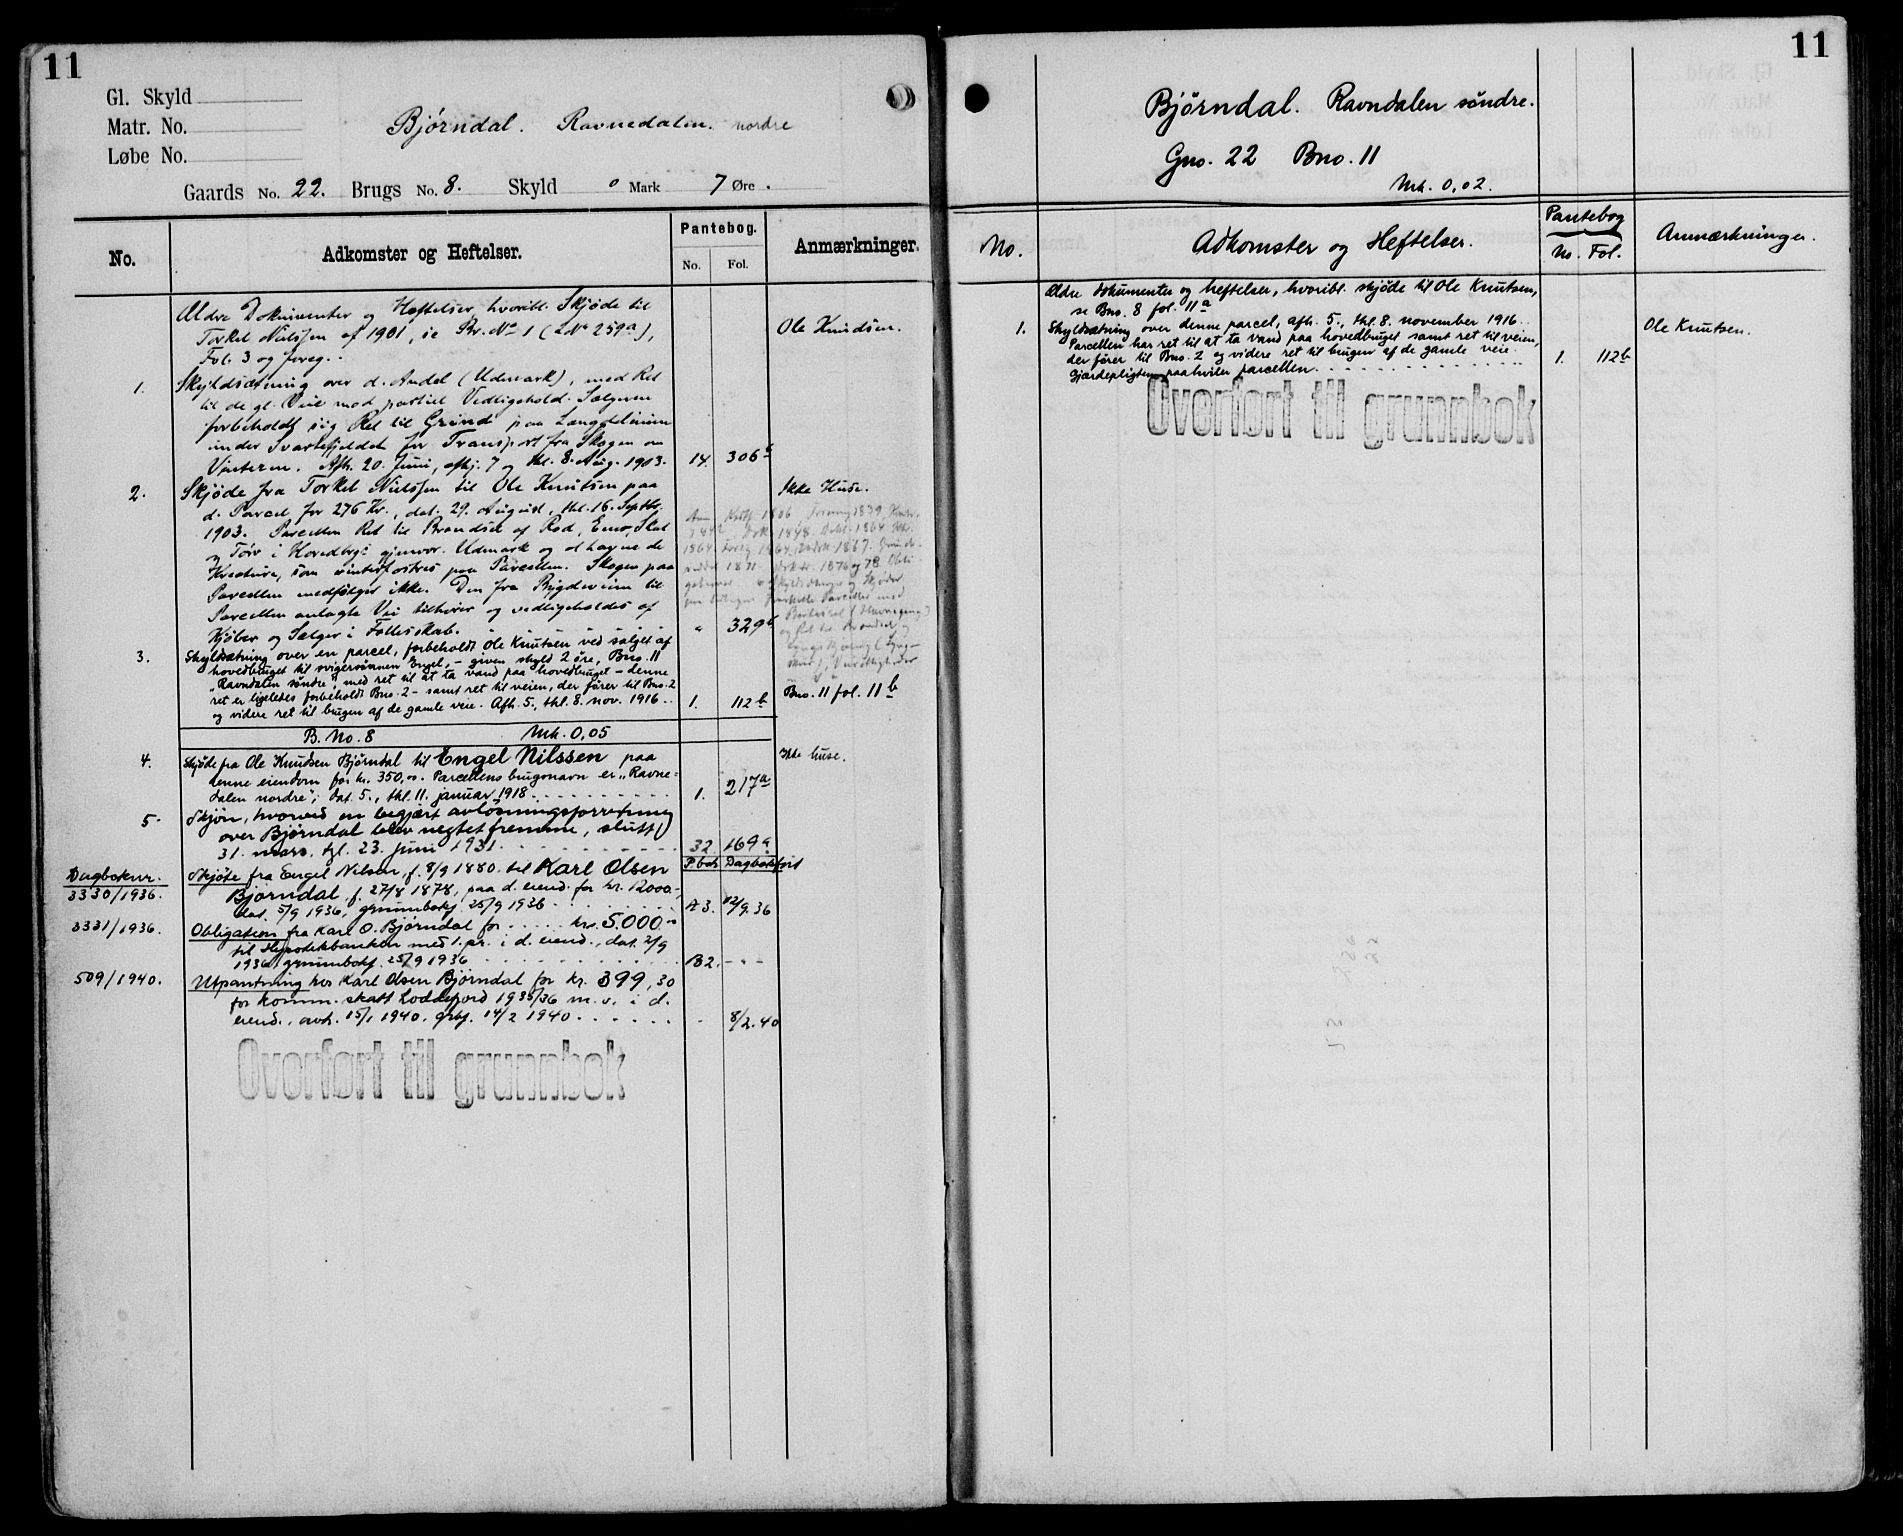 11
Gl. Skyld
Matr. No.
Løbe No.
Bjørndal. Ravnedalen. nordre
Gaards No. 22. Brugs No. 8. Skyld 0 Mark 7 Øre.
No. Adkomster og Heftelser. Pantebog. No. Fol. Anmærkninger.
Ældre Dokumenter og Heftelser, hvoribl. Skjøde til
Torkel Nielsen af 1901, se Br. No 1 (Lno 259a),
Fol. 3 og foreg.. Ole Knudsen.
1. Skyldsætning over d. Andel (Udmark), med Ret
til de gl. Veie mod partiel Vedligehold. Sælgeren
forbeholdt sig Ret til Grind paa Længdelinien
under Svartefjeldet for Transport fra Skogen om
Vinteren. Afh. 20. Juni, afhj. 7 og thl. 8. Aug. 1903. 14. 306b
2. Skjøde fra Torkel Nielssen til Ole Knutsen paa Ikke Huse.
d. Parcel for 276 Kr., dat. 29. August, thl. 16. Septbr.
1903. Parcellen Ret til Brændsel af Rod, Ener, Slat
og Tørv i Hovedbrgs gjenvær. Udmark og at havne de
Kreature, som vinterfostres paa Parcellen. Skogen paa
Parcellen medfølger ikke. Den fra Bygdeveien til
Parcellen anlagte Vei tilhører og vedligeholdes af
Kjøber og Sælger i Fællesskab. " 329b
3. Skyldsætning over en parcel, forbeholdt Ole Knutsen ved salget af
hovedbruget til svigersønnen Engel, - given skyld 2 øre, Bno. 11
"Ravndalen søndre", med ret til at ta vand paa hovedbruget - denne
ret er ligeledes forbeholdt Bno. 2 - samt ret til veien, der fører til Bno. 2
og videre ret til brugen af de gamle veie. Afh. 5., thl. 8. nov. 1916.. 1. 112b Bno. 11 fol. 11b
B. No. 8 Mrk. 0,05
4. Skjøde fra Ole Knudsen Bjørndal til Engel Nilssen paa Ikke huse.
denne eiendom for kr. 350,00. Parcellens brugsnavn er "Ravne-
dalen nordre"; dat. 5., thl. 11. januar 1918. 1. 217a
5. Skjøn, hvorved en begjært avløsningsforretning
over Bjørndal blev negtet fremme, slutt
31. mars, tgl. 23. juni 1931. 32. 169a
Dagboknr. P.bok Dagbokført
3330/1936. Skjøte fra Engel Nilsen, f. 8/9 1880. til Karl Olsen
Bjørndal f. 27/8 1878, paa d. eiend. for kr. 12000,-
dat. 5/9 1936, grunnbokf. 25/9 1936 A3. 12/9.36
3331/1936. Obligation fra Karl O. Bjørndal for kr. 5.000 00
til Hypotekbanken med 1. pr. i d. eiend., dat. 2/9
1936, grunnbokf. 25/9 1936 B2. - - -
509/1940. Utpantning hos Karl Olsen Bjørndal for kr. 399,30
for komm. skatt Loddefjord 1935/36 m.v. i d.
eiend., avh. 15/1 1940, grbf. 14/2 1940 - 8/2.40
Overført til grunnbok
11
Bjørndal. Ravndalen søndre.
Gno. 22 Bno. 11
Mrk. 0,02.
No. Adkomster og Heftelser. Pantebog No. Fol. Anmærkninger.
Ældre dokumenter og heftelser, hvoribl. skjøde til Ole Knutsen,
se Bno. 8 fol. 11a
1. Skyldsætning over denne parcel, afh. 5., thl. 8. november 1916.. Ole Knutsen.
Parcellen har ret til at ta vand paa hovedbruget samt ret til veien,
der fører til Bno. 2 og videre ret til brugen af de gamle veie.
Gjærdepligten paahviler parcellen. 1. 112b
Overført til grunnbok